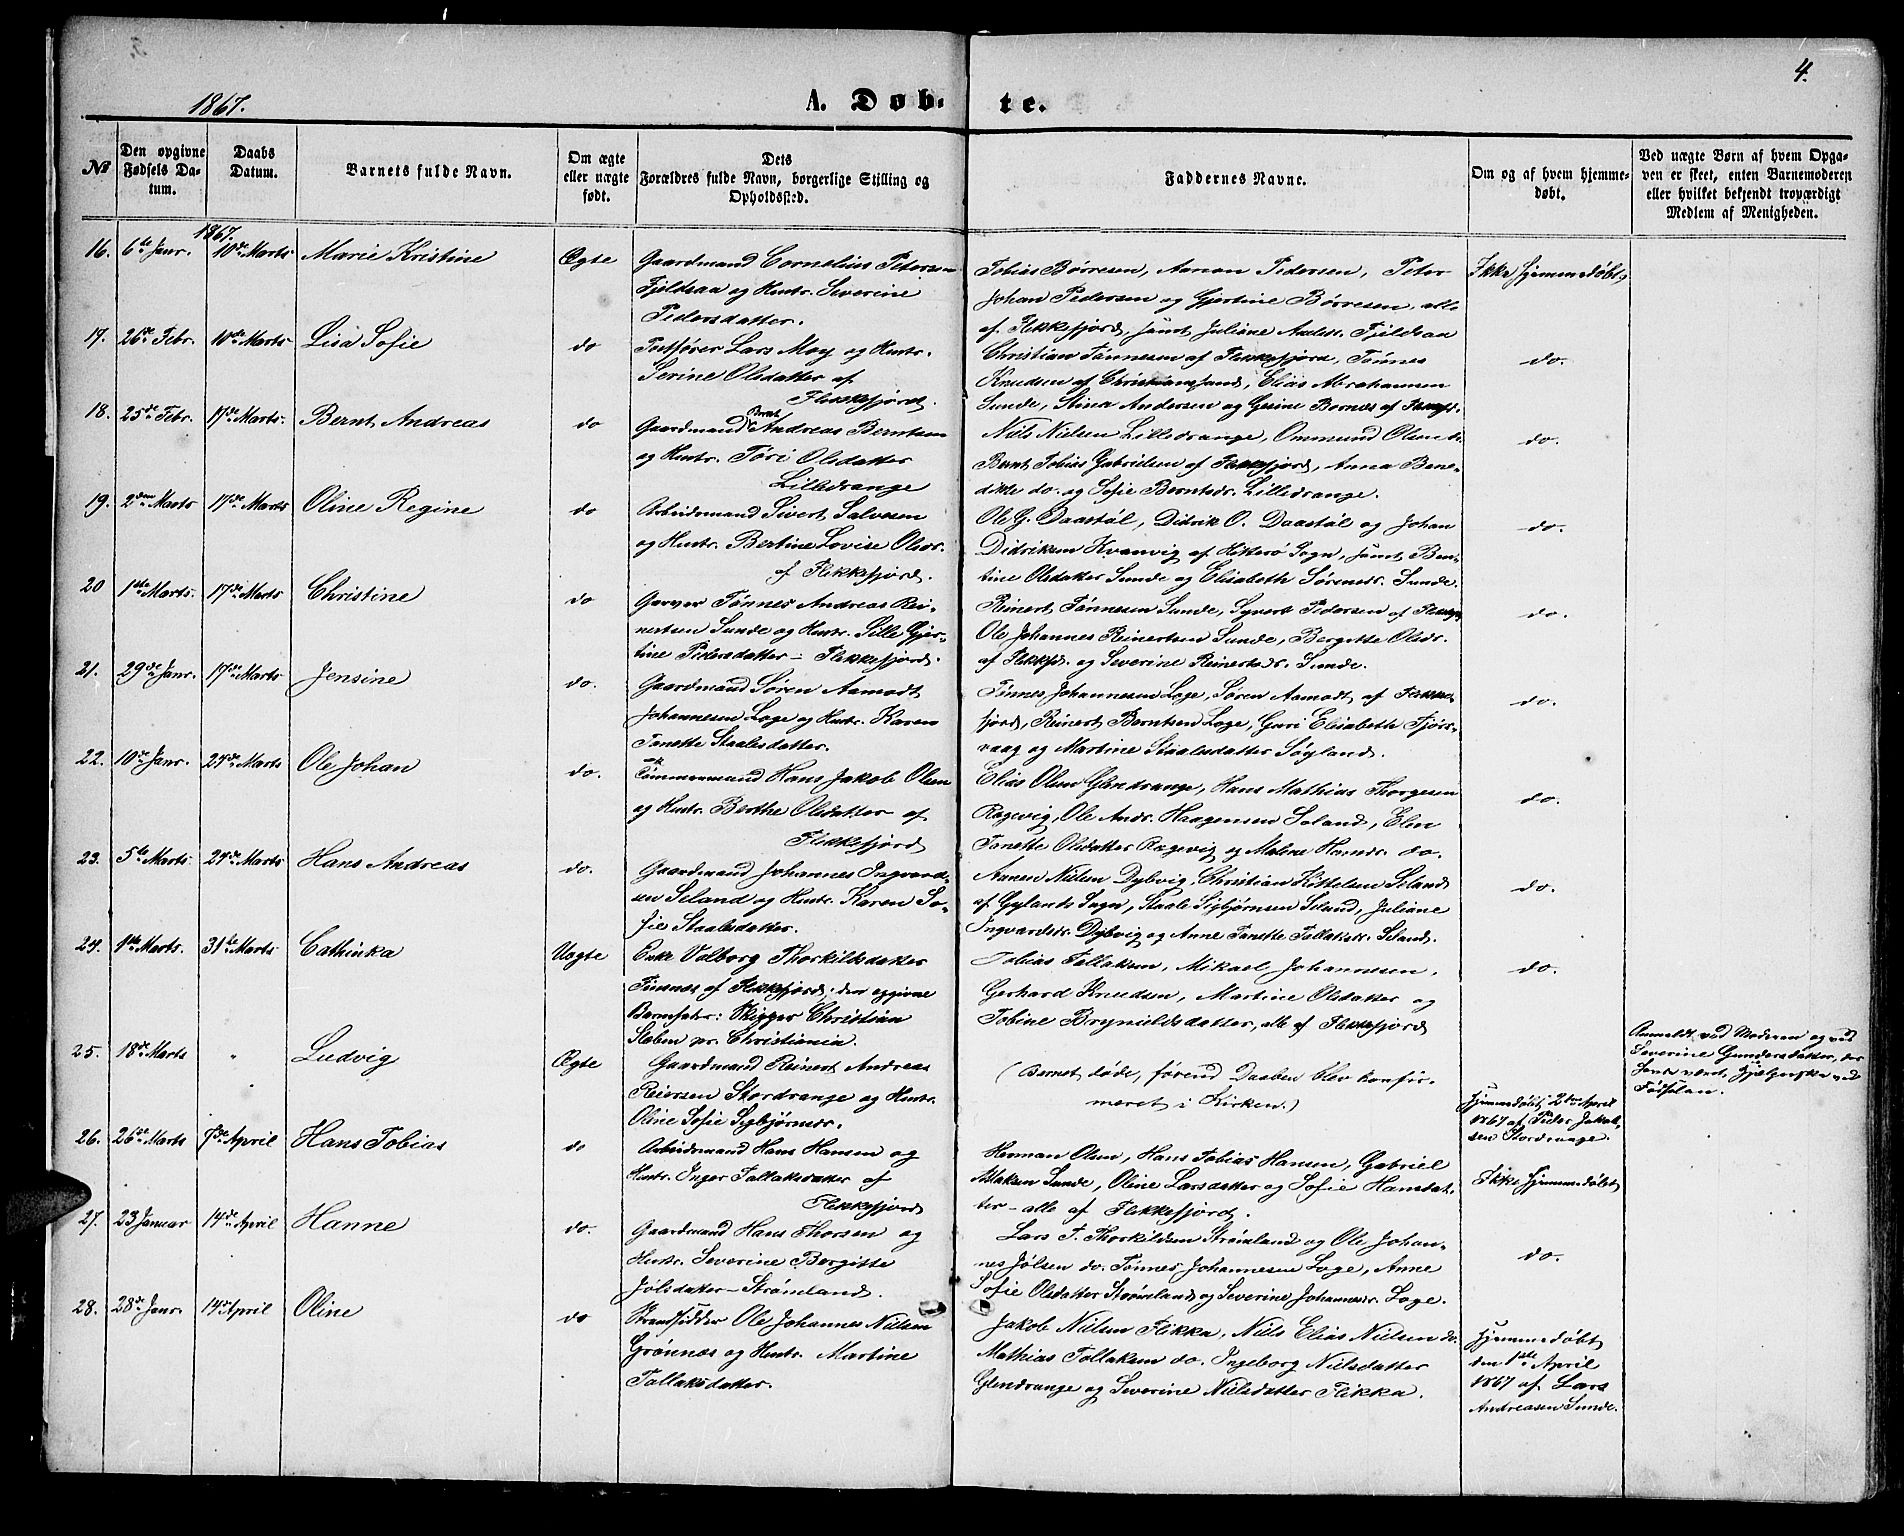 4.
1867.
A. Døb-
te.
No
Den opgivne Fødsels Datum.
Daabs Datum.
Barnets fulde Navn.
Om ægte eller uægte født.
Dets Forældres fulde Navn, borgerlige Stilling og Opholdssted.
Faddernes Navne.
Om og af hvem hjemmedøbt.
Ved uægte Børn af hvem Opgaven er skeet, enten Barnemoderen eller hvilket bekjendt troværdigt Medlem af Menigheden.
1867.
16. 6te Janr. 10de Marts Marie Kristine Ægte
Gaardmand Cornelius Petersen
Fjeldsaa og Hustr. Severine
Pedersdatter.
Tobias Børresen, Aanon Pedersen, Peter
Johan Pedersen og Gjertine Børresen, alle
af Flekkefjord, samt Juliane Fjeldsaa
Ikke hjemmedøbt
17. 26de Febr. 10de Marts Lisa Sofie do
Postfører Lars Moy og Hustr.
Serine Olsdatter af
Flekkefjord.
Christian Tønnesen af Flekkefjord, Tønnes
Knudsen af Christianssand, Elias Abrahamsen
Sunde, Stina Andersen og Gesine Bornæs af
do.
18. 25de Febr. 17de Marts. Bernt Andreas do
Gaardmand Bernt Andreas Berntsen
og Hustr. Tøri Olsdatter
Lilledrange
Niels Nielsen Lilledrange, Ommund Olsen do.
Bernt Tobias Gabrielsen af Flekkefjord, Anna Bene-
dikte do. og Sofie Berntsdr. Lilledrange.
do.
19. 2den Marts 17de Marts Oline Regine do
Arbeidsmand Sivert Salvesen
og Hustr. Bertine Lovise Olsdr.
af Flekkefjord.
Ole G. Daastøl, Didrik O. Daastøl og Johan
Didriksen Kvanvig af Hitterø Sogn, samt Ben-
tine Olsdatter Sunde og Elisabeth Sørensdr. Sunde.
do.
20 1ste Marts. 17de Marts Christine do
Garver Tønnes Andreas Rei-
nertsen Sunde og Hustr. Sille Gjer-
tine Pedersdatter - Flekkefjord.
Reinert Tønnesen Sunde, Syvert Pedersen af
Ole Johannes Reinertsen Sunde, Bergitte Olsdr.
af Flekkfd. og Severine Reinertsdr. Sunde.
do.
21. 29de Janr. 17de Marts Jensine do.
Gaardmand Søren Aamodt
Johannesen Loge og Hustr. Karen
Tanette Staalesdatter.
Tønnes Johannesen Loge, Søren Aamodt af Flekke-
fjord, Reinert Berntsen Loge, Guri Elisabeth Fjøs-
vaag og Martine Staalesdatter Søyland.
do.
22. 10de Janr. 24de Marts Ole Johan do.
Tømmermand Hans Jakob Olsen
og Hustr. Berthe Olsdatter af
Flekkefjord
Elias Olsen Glendrange, Hans Mathias Thorgesen
Rægevig, Ole Andr. Haagensen Seland, Elen
Tanette Olsdatter Rægevig og Malene do.
do.
23. 5te Marts. 24de Marts Hans Andreas do.
Gaardmand Johannes Ingvard-
sen Seland og Hustr. Karen So-
fie Staalesdatter.
Aanen Nielsen Dybvig, Christian Kittelsen Seland
af Gylands Sogn, Staale Sigbjørnsen Selund, Juliane
Ingvardsdr. Dybvig og Anne Tanette Tollaksdr. Seland.
do.
24. 1ste Marts. 31te Marts Cathinka Uægte
Enke Valborg Thorkildsdatter
af Flekkefjord; den opgivne
Barnefader: Skipper Christian
pr. Christiania.
Tobias Tollaksen, Mikael Johannesen,
Gerhard Knudsen, Martine Olsdatter og
Tobine Brynildsdatter, alle af Flekkefjord
do.
Anmeldt ved Moderen og ved
Severine Gundersdatter, der
ved
Fødselen.
25. 18de Marts " Ludvig Ægte
Gaardmand Reinert Andreas
Reiersen Stordrange og Hustr.
Oline Sofie Sigbjørnsdr.
(Barnet døde, førend Daaben blev konfir-
meret i Kirken.)
Hjemmedøbt 2den April
1867 af Peder Jakob-
sen Stordrange.
26. 26de Marts 7de April Hans Tobias do
Arbeidsmand Hans Hansen og
Hustr. Inger Tallaksdatter af
Flekkefjord
Herman Olsen, Hans Tobias Hansen, Gabriel
Aslaksen Sunde, Oline Larsdatter og Sofie Hansdat-
ter - alle af Flekkefjord.
Ikke hjemmedøbt
27. 23 Januar 14de April Hanne do.
Gaardmand Hans Thorsen og
Hustr. Severine Bergitte
Jølsdatter - Strømland.
Lars T. Thorkildsen Strømland og Ole Johan-
nes Jølsen do. Tønnes Johannesen Loge, Anne
Sofie Olsdatter Strømland og Severine Johannesdr. Loge.
do.
28. 28de Janr. 14de April Oline do
Strandsidder Ole Johannes Nielsen
Grønnæs og Hustr. Martine
Tallaksdatter.
Jakob Nielsen Flikka, Niels Elias Nielsen do.
Mathias Tollaksen do. Ingeborg Nielsdatter
Glendrange og Severine Nielsdatter Flikka.
Hjemmedøbt
den 1ste April
1867 af Lars
Andreasen Sunde.